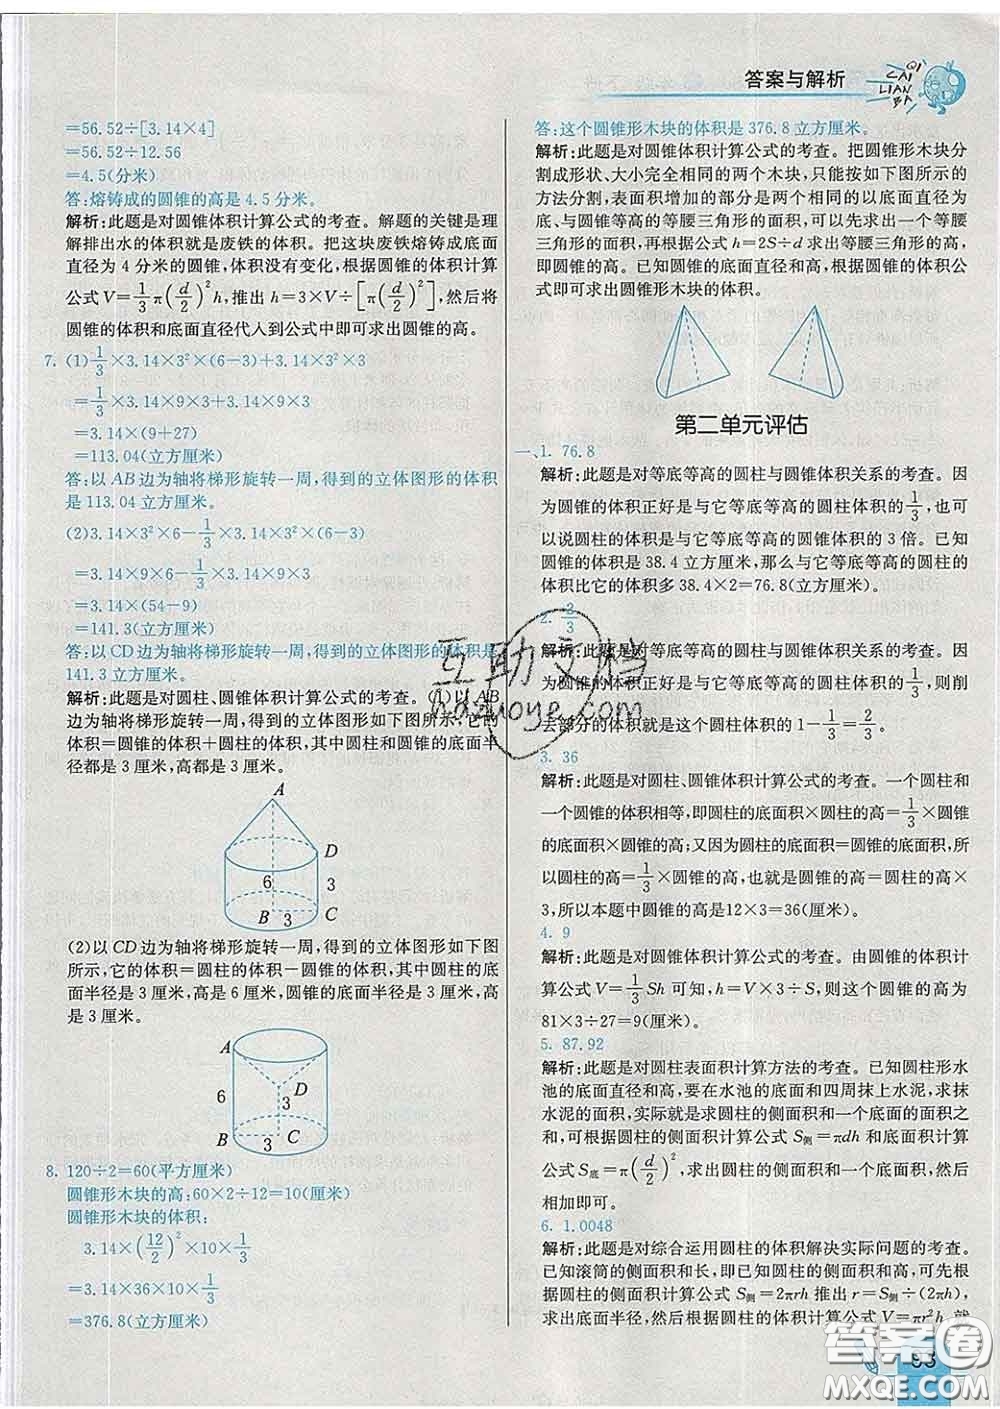 答案与解析
QI
CAI
LIAN
BA
=56.52÷[3.14×4]
=56.52÷12.56
=4.5(分米)
答:熔铸成的圆锥的高是4.5分米。
解析:此题是对圆锥体积计算公式的考查。解题的关键是理
解排出水的体积就是废铁的体积。把这块废铁熔铸成底面
直径为4分米的圆锥,体积没有变化,根据圆锥的体积计算
公式V=1/3π(d/2)²h,推出h=3×V÷[π(d/2)²],然后将
圆锥的体积和底面直径代人到公式中即可求出圆锥的高。
7. (1)1/3×3.14×3²×(6-3)+3.14×3²×3
=1/3×3.14×9×3+3.14×9×3
=3.14×(9+27)
=113.04(立方厘米)
答:以AB边为轴将梯形旋转一周,得到的立体图形的体积
是113.04立方厘米。
(2)3.14×3²×6-1/3×3.14×3²×(6-3)
=3.14×9×6-1/3×3.14×9×3
=3.14×(54-9)
=141.3(立方厘米)
答:以CD边为轴将梯形旋转一周,得到的立体图形的体积是
141.3立方厘米。
解析:此题是对圆柱、圆锥体积计算公式的考查。(1)以AB
边为轴将梯形旋转一周,得到的立体图形如下图所示,它的
体积=圆锥的体积+圆柱的体积,其中圆柱和圆锥的底面半
径都是3厘米,高都是3厘米。
A
D
6
3
B 3 C
(2)以CD边为轴将梯形旋转一周,得到的立体图形如下图
所示,它的体积=圆柱的体积-圆锥的体积,其中圆柱的底
面半径是3厘米,高是6厘米,圆锥的底面半径是3厘米,高
是3厘米。
A
D
6
3
B 3 C
8. 120÷2=60(平方厘米)
圆锥形木块的高:60×2÷12=10(厘米)
圆锥形木块的体积:
3.14×(12/2)²×10×1/3
=3.14×36×10×1/3
=376.8(立方厘米)
答:这个圆锥形木块的体积是376.8立方厘米。
解析:此题是对圆锥体积计算公式的考查。把圆锥形木块分
割成形状、大小完全相同的两个木块,只能按如下图所示的
方法分割,表面积增加的部分是两个相同的以底面直径为
底、与圆锥等高的等腰三角形的面积,可以先求出一个等腰
三角形的面积,再根据公式h=2S÷d求出等腰三角形的高,
即圆锥的高。已知圆锥的底面直径和高,根据圆锥的体积公
式即可求出圆锥形木块的体积。
第二单元评估
一、1. 76.8
解析:此题是对等底等高的圆柱与圆锥体积关系的考查。因
为圆锥的体积正好是与它等底等高的圆柱体积的1/3,也可
以说圆柱的体积是与它等底等高的圆锥体积的3倍。已知
圆锥的体积是38.4立方厘米,那么与它等底等高的圆柱的
体积比它的体积多38.4×2=76.8(立方厘米)。
2. 2/3
解析:此题是对等底等高的圆柱与圆锥体积关系的考查。因
为圆锥的体积正好是与它等底等高的圆柱体积的1/3,则削
去部分的体积就是这个圆柱体积的1-1/3=2/3。
3. 36
解析:此题是对圆柱、圆锥体积计算公式的考查。一个圆柱和
一个圆锥的体积相等,即圆柱的底面积×圆柱的高=1/3×圆锥
的底面积×圆锥的高;又因为圆柱的底面积=圆锥的底面积,所
以圆柱的高=1/3×圆锥的高,也就是圆锥的高=圆柱的高×
3,所以本题中圆锥的高是12×3=36(厘米)。
4. 9
解析:此题是对圆锥体积计算公式的考查。由圆锥的体积计
算公式V=1/3Sh可知,h=V×3÷S,则这个圆锥的高为
81×3÷27=9(厘米)。
5. 87.92
解析:此题是对圆柱表面积计算方法的考查。已知圆柱形水
池的底面直径和高,要在水池的底面和四周抹上水泥,求抹
水泥的面积,实际就是求圆柱的侧面积和一个底面积的面积之
和,可根据圆柱的侧面积计算公式S侧=πdh和底面积计算
公式S底=π(d/2)²,求出圆柱的侧面积和一个底面积,然后
相加即可。
6. 1.0048
解析:此题是对综合运用圆柱的体积解决实际问题的考查。
已知滚筒的侧面积和长,即已知圆柱的侧面积和高,可先根
据圆柱的侧面积计算公式S侧=2πrh推出r=S侧÷(2πh),
求出底面半径,然后根据圆柱的体积计算公式V=πr²h,就
互助文档
hdzuoye.com
答案圈
MXQE.COM